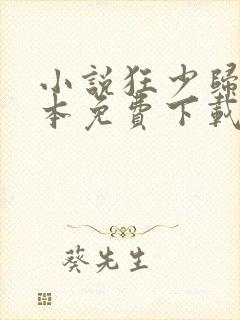 小說狂少歸
本免費下載
葵先生